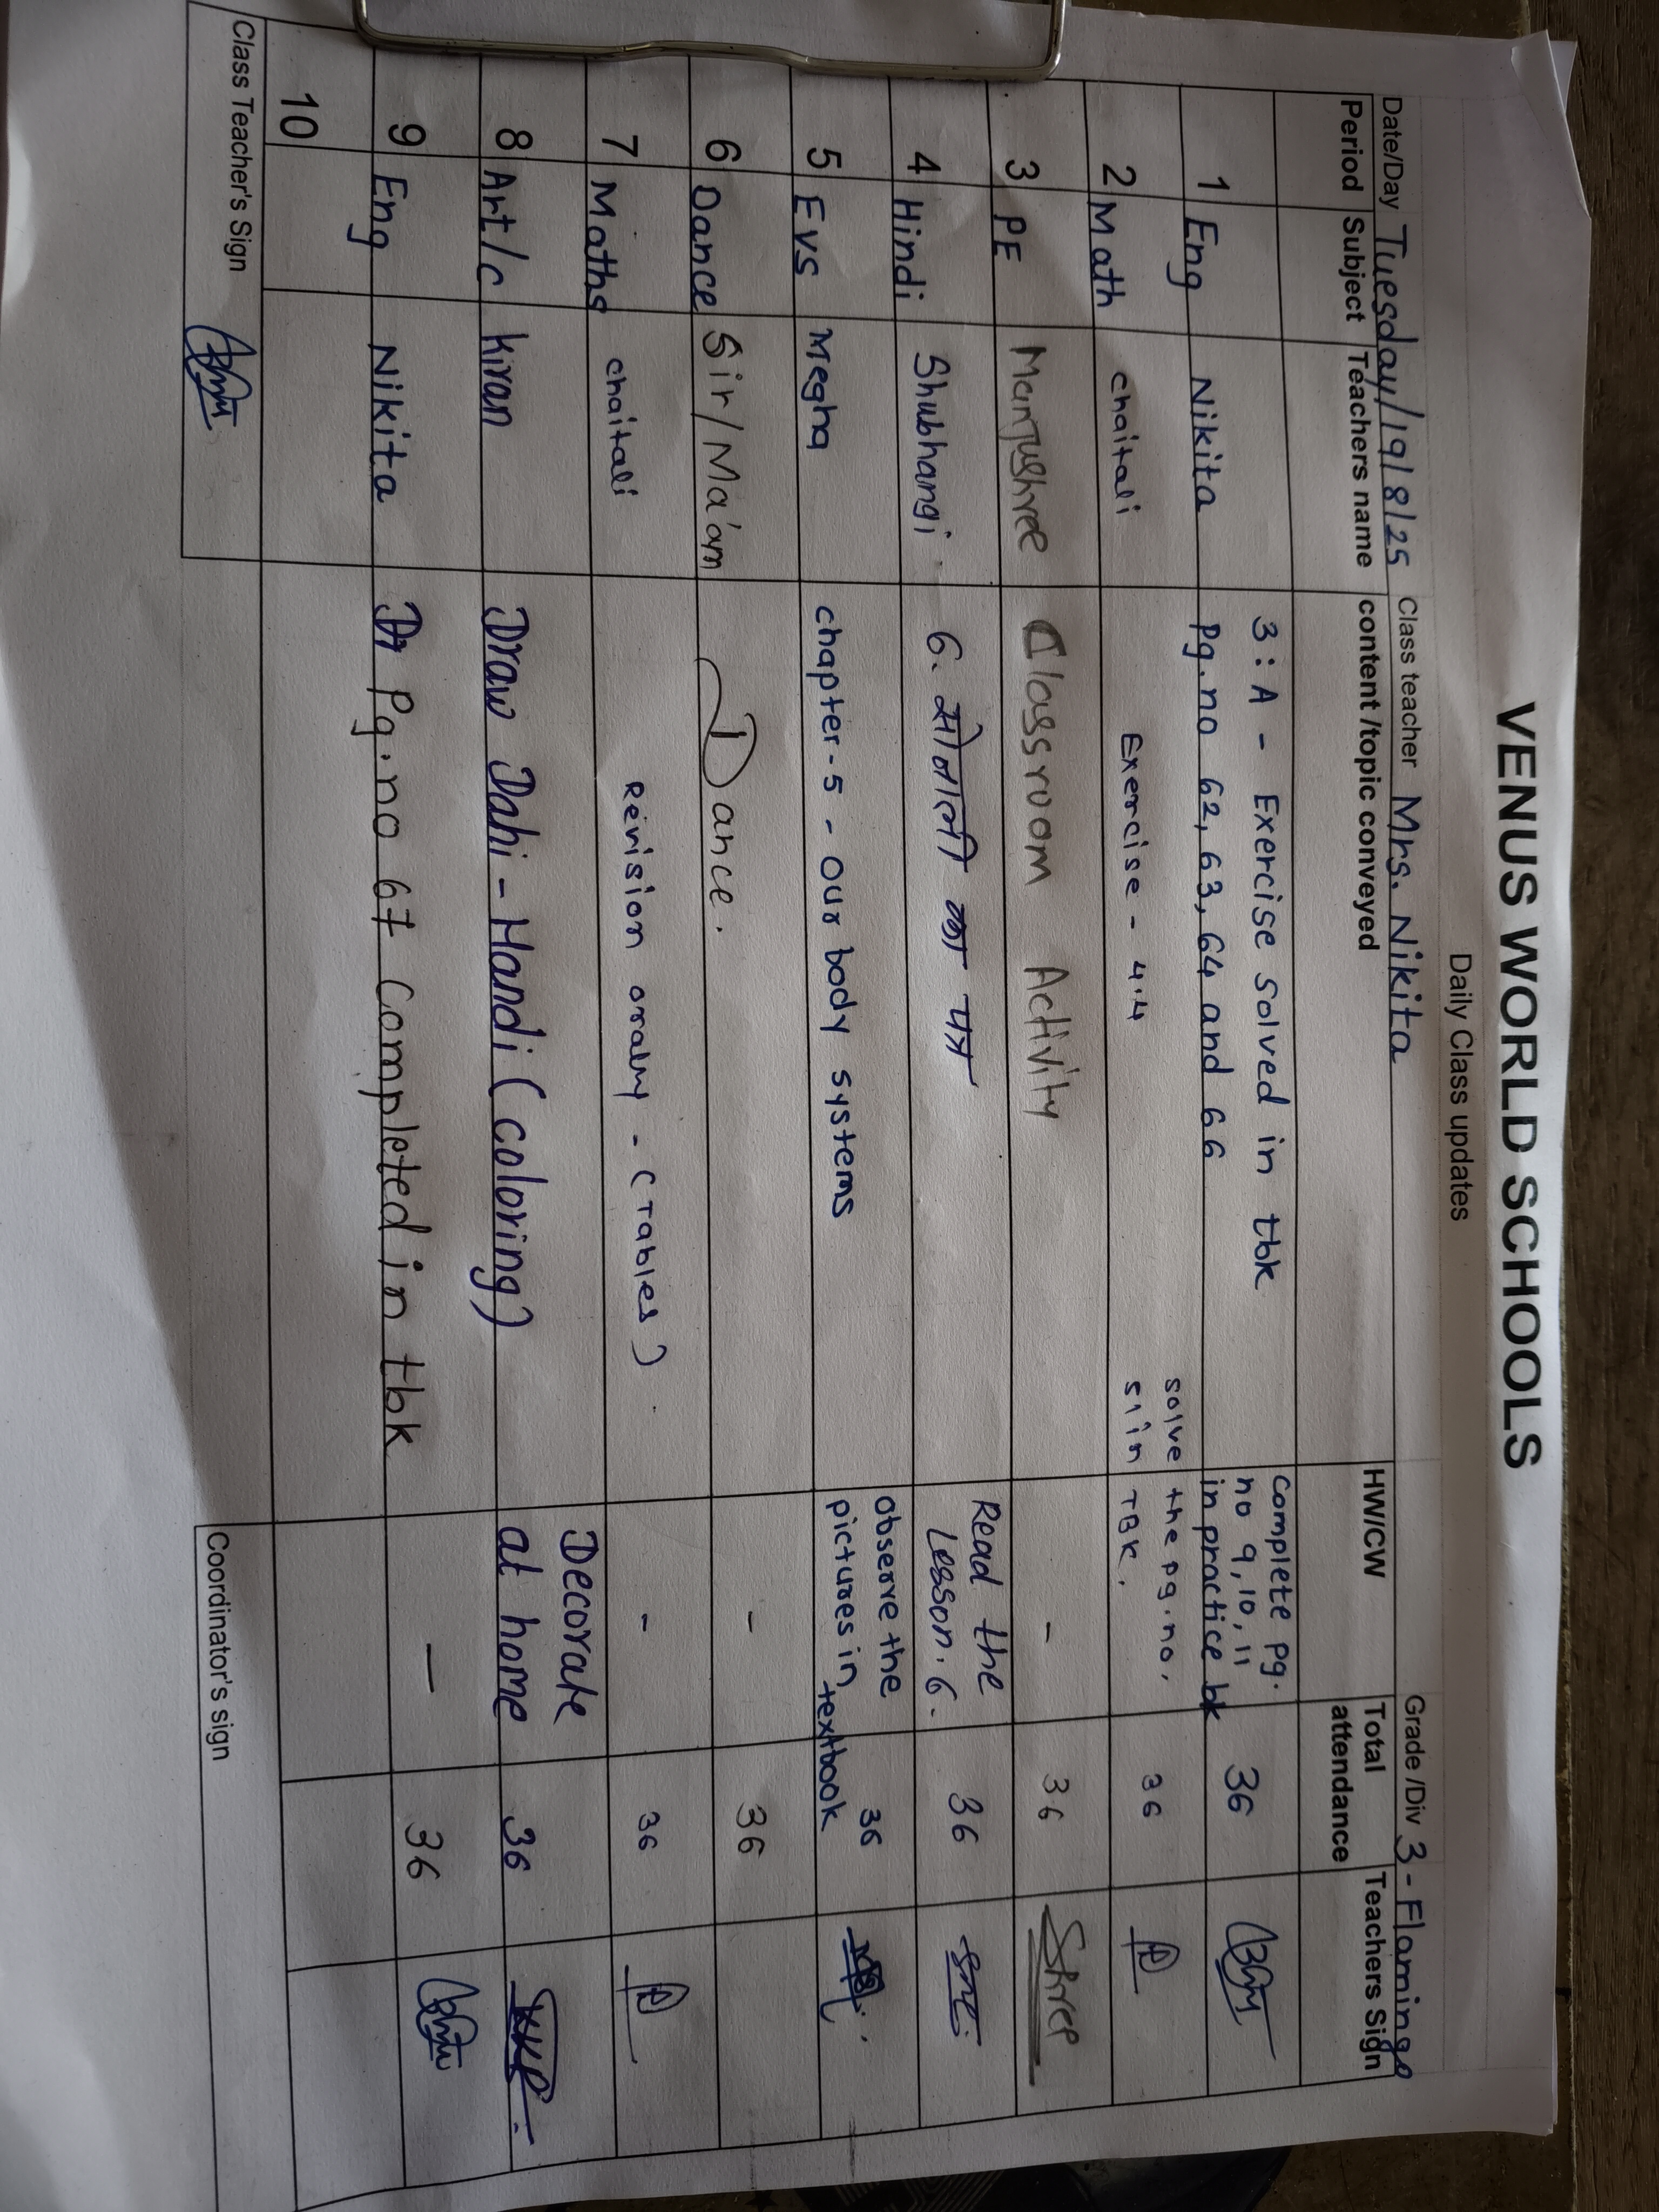 VENUS WORLD SCHOOLS
Daily Class updates
Date/Day Tuesday/19/8/25 Class teacher Mrs. Nikita Grade /Div 3 - Flamingo
Period Subject Teachers name content /topic conveyed HW/CW Total attendance Teachers Sign
1 Eng Nikita 3 : A - Exercise solved in tbk
Pg.no 62, 63, 64 and 66
Complete pg.
no 9, 10, 11
in practice bk
36
2 Math chaitali Exercise - 4.4
solve the pg.no.
51 in TBK.
36
3 PE Manjushree Classroom Activity - 36 Shree
4 Hindi Shubhangi 6. सोनाली का पत्र
Read the
Lesson. 6.
36
5 Evs Megha chapter-5 - our body systems
observe the
pictures in textbook
36
6 Dance Sir/Ma'am Dance. - 36
7 Maths chaitali Revision orally - (Tables) - 36
8 Art/c Kiran Draw Dahi - Handi (coloring)
Decorate
at home
36
9 Eng Nikita Pg.no 67 Completed in tbk - 36
10
Class Teacher's Sign
Coordinator's sign